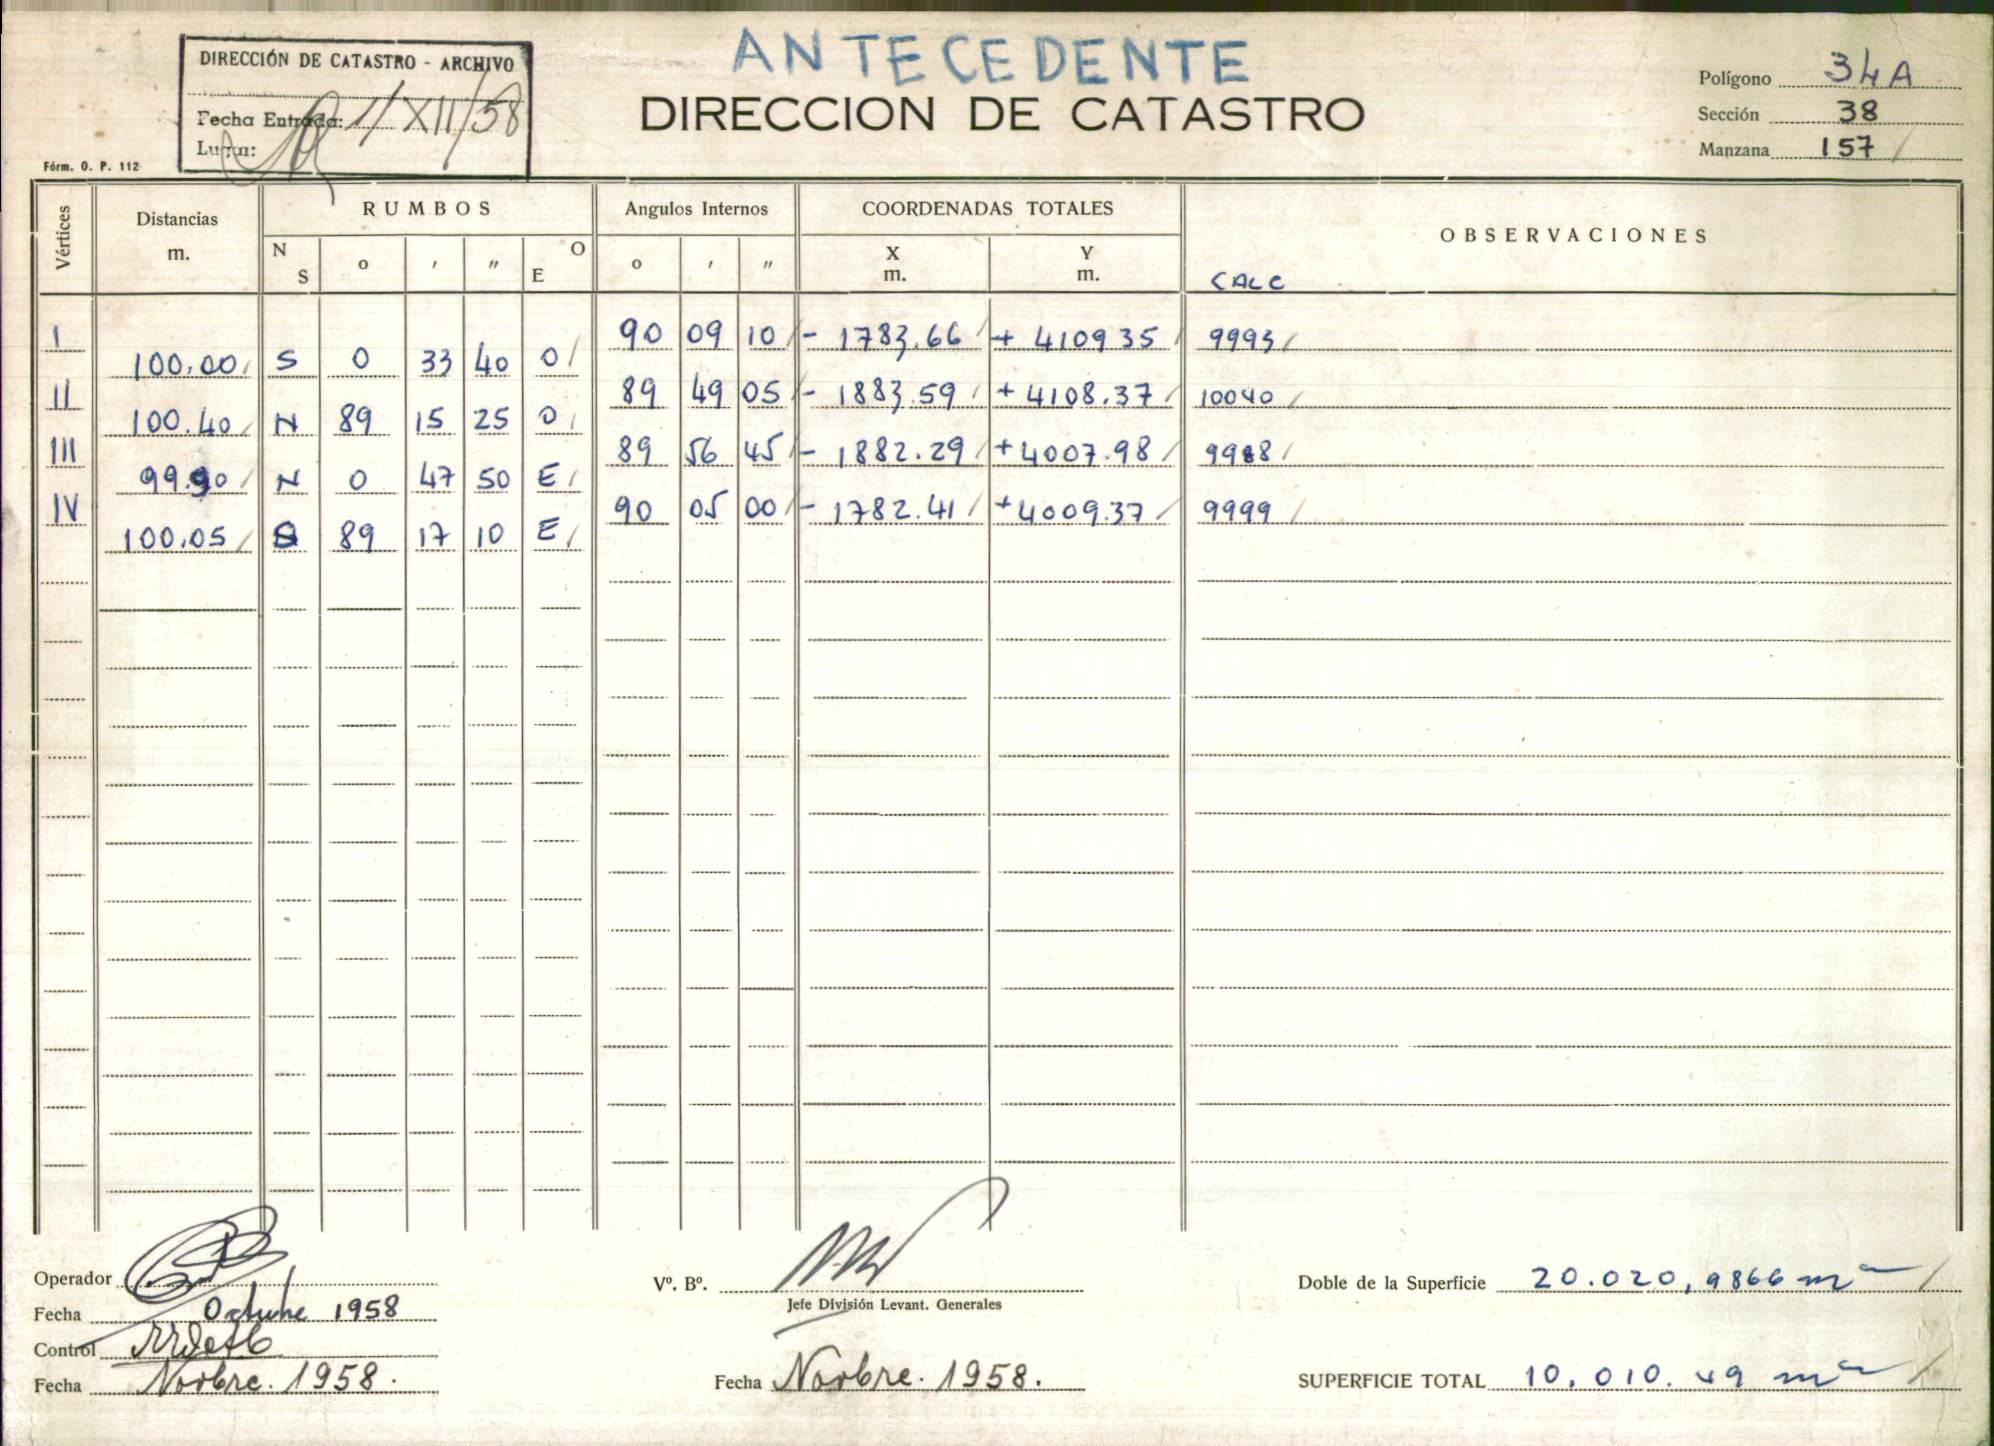 ANTECEDENTE
DIRECCIÓN DE CATASTRO - ARCHIVO
Fecha Entrada: 1/XII/58
Lugar:
DIRECCION DE CATASTRO
Polígono 34A
Sección 38
Manzana 157 /
Fórm. O. P. 112
Vértices Distancias m. RUMBOS Angulos Internos COORDENADAS TOTALES OBSERVACIONES
N S o ' " E O o ' " X m. Y m. CALC
I 90 09 10 / - 1783.66 / + 4109 35 / 9993 /
100.00 / S 0 33 40 O /
II 89 49 05 / - 1883.59 / + 4108.37 / 10040 /
100.40 / N 89 15 25 O /
III 89 56 45 / - 1882.29 / + 4007.98 / 9988 /
99.90 / N 0 47 50 E /
IV 90 05 00 / - 1782.41 / + 4009.37 / 9999 /
100.05 / S 89 17 10 E /
Operador
Fecha Octubre 1958
Control
Fecha Novbre. 1958.
Vº. Bº.
Jefe División Levant. Generales
Fecha Novbre. 1958.
Doble de la Superficie 20.020,9866 m² /
SUPERFICIE TOTAL 10.010.49 m² /